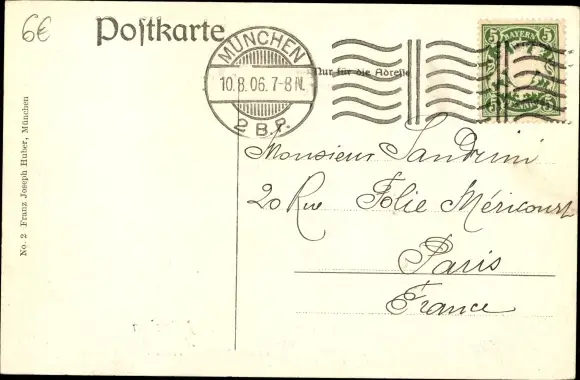 6€
Postkarte
MÜNCHEN
10.8.06.7-8 N.
2 B.P.
5 BAYERN 5
Nur für die Adresse
Monsieur Sandrini
20 Rue Folie Méricourt
Paris
France
No. 2 Franz Joseph Huber, München